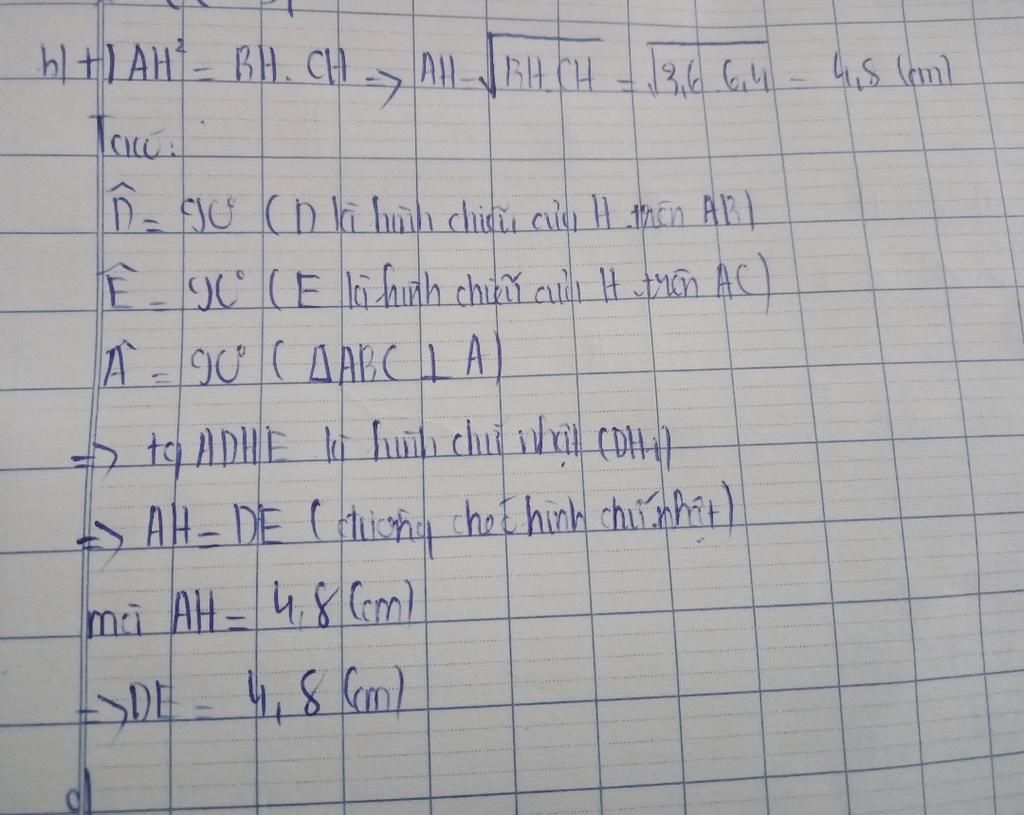 b) +) AH² = BH. CH => AH = √BH.CH = √3,6 6,4 = 4,8 (cm)
Ta có:
D̂ = 90° (D là hình chiếu của H trên AB)
Ê = 90° (E là hình chiếu của H trên AC)
Â = 90° (ΔABC ⊥ A)
=> tg ADHE là hình chữ nhật (DHI)
=> AH = DE (đường chéo hình chữ nhật)
mà AH = 4,8 (cm)
=> DE = 4,8 (cm)